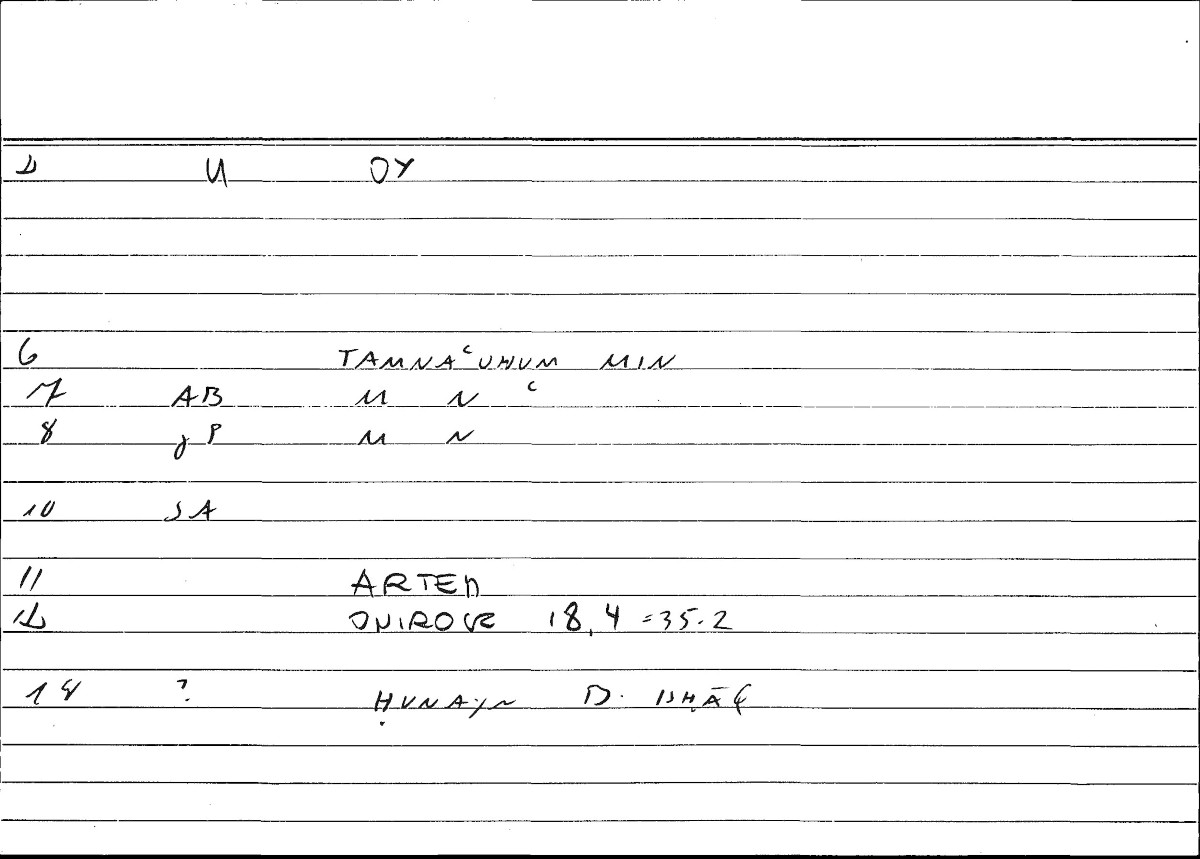 1 U OY
6 TAMNAʿUHUM MIN
7 AB M N ʿ
8 JP M N
10 SA
11 ARTED
12 ONIROCR 18,4 =35.2
18 ? ḤUNAYN B. ISḤĀQ